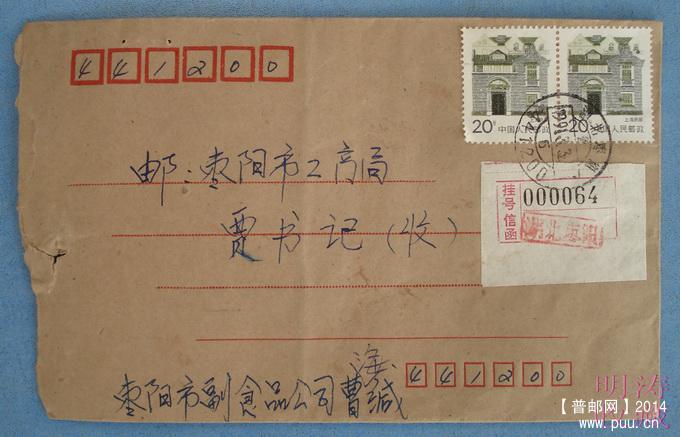 441200
20分 中国人民邮政
上海民居
20分 中国人民邮政
邮：枣阳市工商局
贾书记（收）
挂号信函
000064
湖北枣阳
枣阳市副食品公司曹诚
441200
【普邮网】2014
www.puu.cn